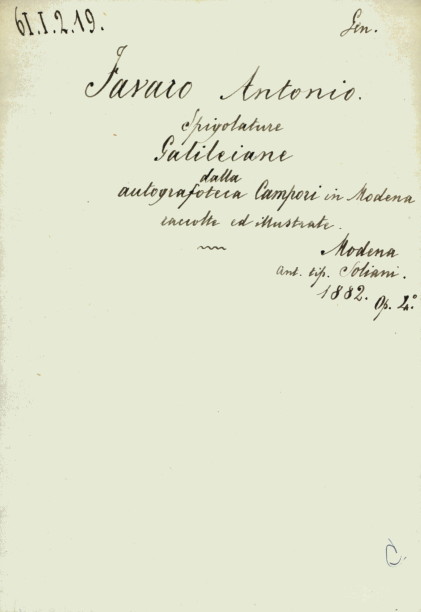 61.I.2.19.
Gen.
Favaro Antonio.
Spigolature
Galileiane
dalla
autografoteca Campori in Modena
raccolte ed illustrate.
Modena
Ant. tip. Soliani.
1882. Op. 4.°
C.